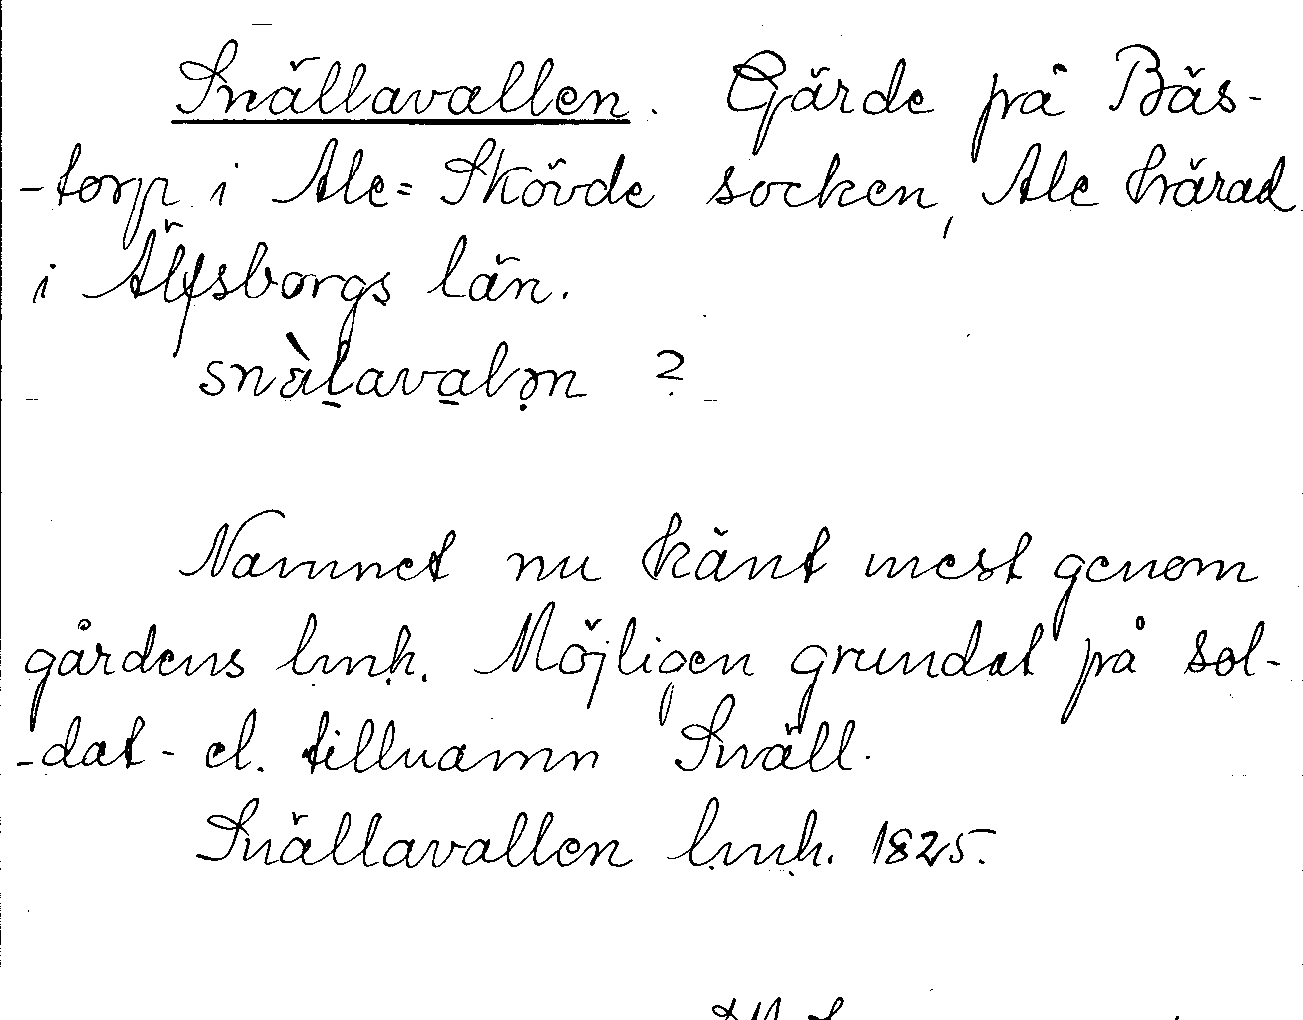 Snällavallen. Gärde på Bäs-
-torp i Ale=Skövde socken, Ale härad
i Älfsborgs län.
snä̀l̠ava̠lə̣n ?
Namnet nu känt mest genom
gårdens lmh. Möjligen grundat på sol-
-dat- el. tillnamn Snäll.
Snällavallen lmh. 1825.